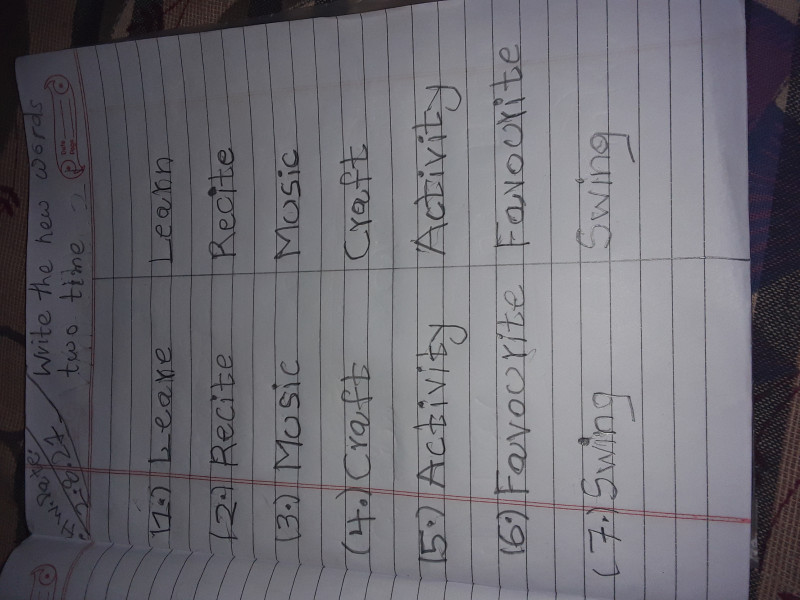 Write the new words
two time :-
(1.) Leare Learn
(2.) Recite Recite
(3.) Music Music
(4.) Craft Craft
(5.) Activity Activity
(6.) Favourite Favourite
(7.) Swing Swing